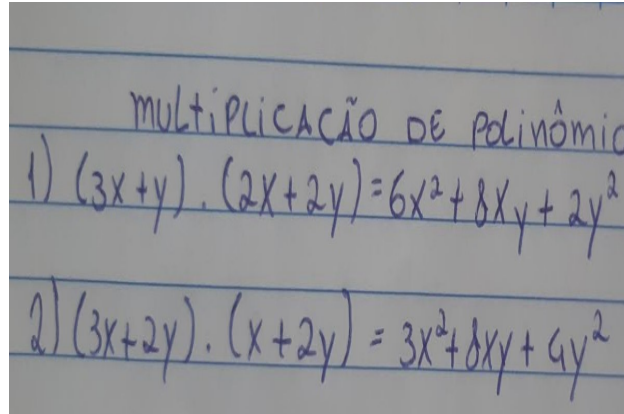 MULTIPLICAÇÃO DE POLINÔMIO
1) (3x+y).(2x+2y)=6x²+8xy+2y²
2) (3x+2y).(x+2y) = 3x²+8xy+4y²